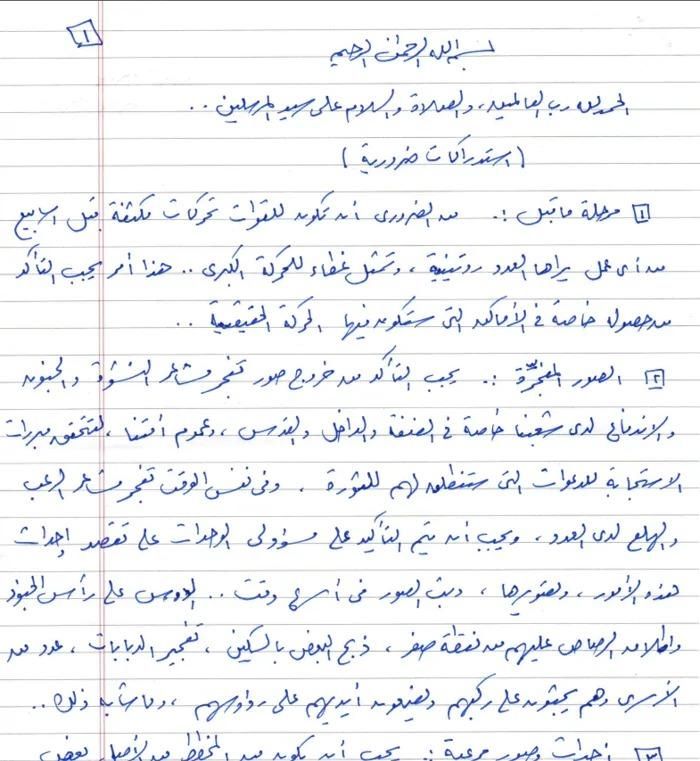 ١
بسم الله الرحمن الرحيم
الحمد لله رب العالمين، والصلاة والسلام على سيد المرسلين ..
(استدراكات ضرورية)
١ مرحلة ما قبل :. من الضروري أن تكون للقوات تحركات مكثفة قبل أسابيع
من أي عمل يراها العدو روتينية، وتمثل غطاء للحركة الكبرى .. هذا أمر يجب التأكد
من حصوله خاصة في الأماكن التي ستكون فيها الحركة الحقيقية ..
٢ الصور المفجرة :. يجب التأكد من خروج صور تفجر مشاعر النشوة والجنون
والاندفاع لدى شعبنا خاصة في الضفة والداخل والقدس، وعموم أمتنا، لتتحقق مبررات
الاستجابة للدعوات التي ستنطلق لهم للثورة، وفي نفس الوقت تفجر مشاعر الرعب
والهلع لدى العدو، ويجب أن يتم التأكيد على مسؤولي الوحدات على تقصد إحداث
هذه الأمور، وتصويرها، وبث الصور في أسرع وقت .. الدوس على رأس الجنود
وإطلاق الرصاص عليهم من نقطة صفر، ذبح البعض بالسكين، تفجير الدبابات، عدد من
الأسرى وهم يجثون على ركبهم ويضعون أيديهم على رؤوسهم، وما شابه ذلك ..
٣ أحداث وصور مرعبة :. يجب أن يكون من المخطط من الأصل بعض